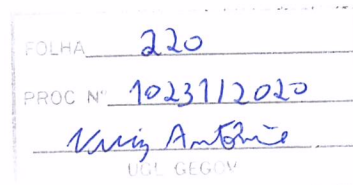 FOLHA 220
PROC Nº 10231/2020
Antônio
UGL GEGOV